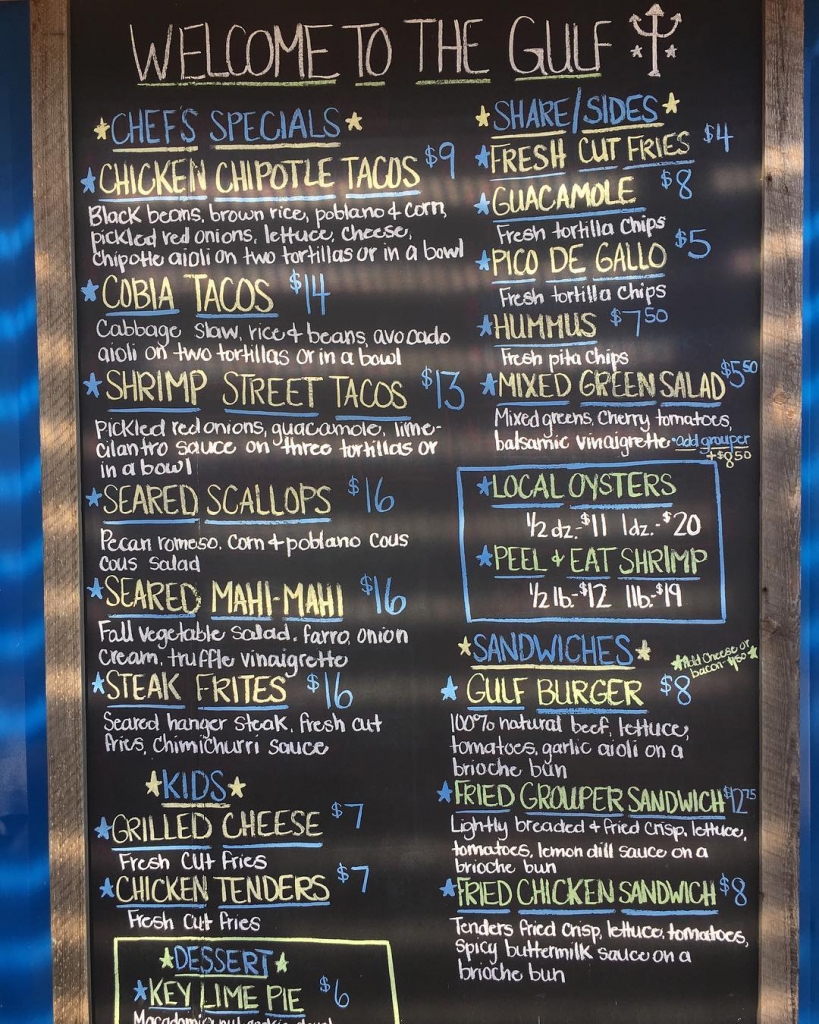 WELCOME TO THE GULF
CHEF'S SPECIALS
CHICKEN CHIPOTLE TACOS $9
Black beans, brown rice, poblano & corn,
pickled red onions, lettuce, cheese,
Chipotle aioli on two tortillas or in a bowl
COBIA TACOS $14
Cabbage slaw, rice & beans, avocado
aioli on two tortillas or in a bowl
SHRIMP STREET TACOS $13
Pickled red onions, guacamole, lime-
cilantro sauce on three tortillas or
in a bowl
SEARED SCALLOPS $16
Pecan romeso, corn & poblano Cous
Cous Salad
SEARED MAHI-MAHI $16
Fall vegetable salad, farro, onion
cream, truffle vinaigrette
STEAK FRITES $16
Seared hanger steak, fresh cut
fries, Chimichurri sauce
KIDS
GRILLED CHEESE $7
Fresh Cut Fries
CHICKEN TENDERS $7
Fresh Cut fries
DESSERT
KEY LIME PIE $6
Macadamia nut
SHARE/SIDES
FRESH CUT FRIES $4
GUACAMOLE $8
Fresh tortilla Chips
PICO DE GALLO $5
Fresh tortilla Chips
HUMMUS $7.50
Fresh pita Chips
MIXED GREEN SALAD $5.50
Mixed greens, Cherry tomatoes,
balsamic vinaigrette • add grouper
+$8.50
LOCAL OYSTERS
1/2 dz.-$11 1dz.-$20
PEEL & EAT SHRIMP
1/2 lb.-$12 1lb.-$19
SANDWICHES
Add Cheese or
bacon-$1.50
GULF BURGER $8
100% natural beef, lettuce,
tomatoes, garlic aioli on a
brioche bun
FRIED GROUPER SANDWICH $12.75
Lightly breaded & fried crisp, lettuce,
tomatoes, lemon dill sauce on a
brioche bun
FRIED CHICKEN SANDWICH $8
Tenders fried crisp, lettuce, tomatoes,
Spicy buttermilk sauce on a
brioche bun